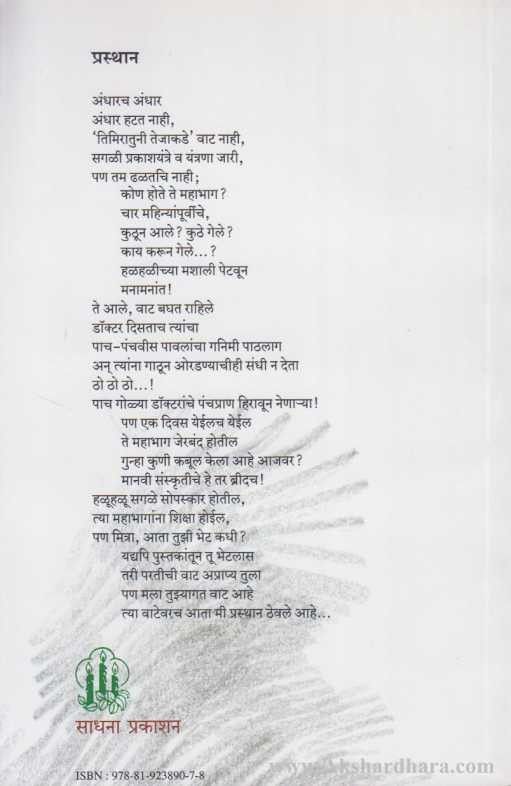 प्रस्थान
अंधारच अंधार
अंधार हटत नाही,
‘तिमिरातुनी तेजाकडे’ वाट नाही,
सगळी प्रकाशयंत्रे व यंत्रणा जारी,
पण तम ढळतचि नाही;
कोण होते ते महाभाग?
चार महिन्यांपूर्वीचे,
कुठून आले? कुठे गेले?
काय करून गेले...?
हळहळीच्या मशाली पेटवून
मनामनांत!
ते आले, वाट बघत राहिले
डॉक्टर दिसताच त्यांचा
पाच-पंचवीस पावलांचा गनिमी पाठलाग
अन् त्यांना गाठून ओरडण्याचीही संधी न देता
ठो ठो ठो...!
पाच गोळ्या डॉक्टरांचे पंचप्राण हिरावून नेणाऱ्या!
पण एक दिवस येईलच येईल
ते महाभाग जेरबंद होतील
गुन्हा कुणी कबूल केला आहे आजवर?
मानवी संस्कृतीचे हे तर ब्रीदच!
हळूहळू सगळे सोपस्कार होतील,
त्या महाभागांना शिक्षा होईल,
पण मित्रा, आता तुझी भेट कधी?
यद्यपि पुस्तकांतून तू भेटलास
तरी परतीची वाट अप्राप्य तुला
पण मला तुझ्यागत वाट आहे
त्या वाटेवरच आता मी प्रस्थान ठेवले आहे...
साधना प्रकाशन
ISBN : 978-81-923890-7-8
www.Akshardhara.com